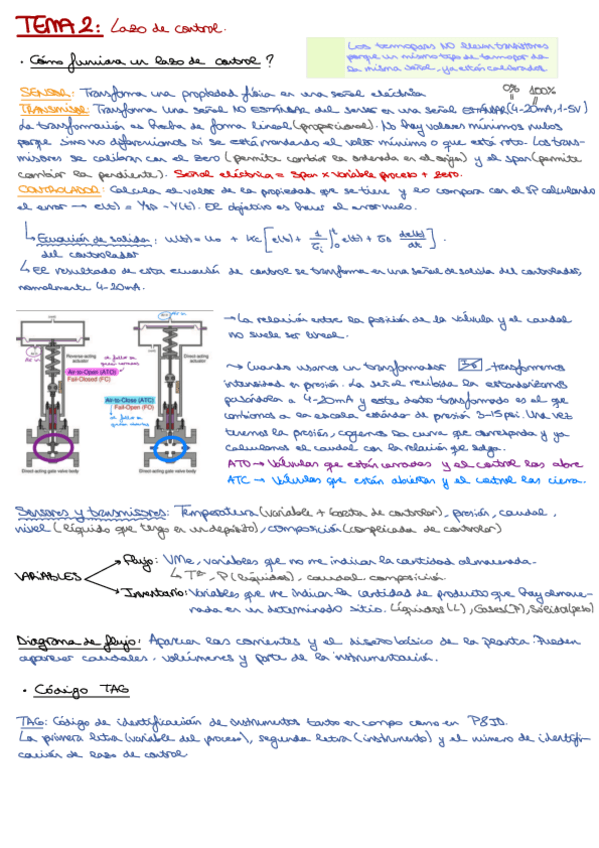 TEMA 2: Lazo de control.
Los termopares NO llevan transmisores
porque un mismo tipo de termopar da
la misma señal, ya están calibrados
· Cómo funciona un lazo de control?
SENSOR: Transforma una propiedad física en una señal eléctrica
0% 100%
TRANSMISOR: Transforma una señal NO ESTÁNDAR del sensor en una señal ESTÁNDAR (4-20mA, 1-5V)
La transformación es hecha de forma lineal (proporcional). No hay valores mínimos nulos
porque sino no diferenciamos si se está mandando el valor mínimo o que está roto. Los trans-
misores se calibran con el zero (permite cambiar la ordenada en el origen) y el span (permite
cambiar la pendiente). Señal eléctrica = Span x Variable proceso + Zero.
CONTROLADOR: Calcula el valor de la propiedad que se tiene y lo compara con el SP calculando
el error → e(t) = Ysp - Y(t). El objetivo es hacer el error nulo.
↳ Ecuación de salida: u(t) = u0 + Kc [e(t) + 1/τi ∫0t e(t) + τD de(t)/dt].
del controlador
↳ El resultado de esta ecuación de control se transforma en una señal de salida del controlador,
normalmente 4-20mA.
Reverse-acting
actuator
Direct-acting
actuator
Air-to-Open (ATO)
Fail-Closed (FC)
Air-to-Close (ATC)
Fail-Open (FO)
Direct-acting gate valve body
Direct-acting gate valve body
→ La relación entre la posición de la válvula y el caudal
no suele ser lineal.
→ Cuando usamos un transformador, transformamos
intensidad en presión. La señal recibida la estandarizamos
pasándola a 4-20mA y este dato transformado es el que
cambiamos a la escala estándar de presión 3-15psi. Una vez
tenemos la presión, cogemos la curva que corresponda y ya
calculamos el caudal con la relación que salga.
ATO → Válvulas que están cerradas y el control las abre
ATC → Válvulas que están abiertas y el control las cierra.
Sensores y transmisores: Temperatura (variable + barata de controlar), presión, caudal,
nivel (líquido que tengo en un depósito), composición (complicada de controlar)
VARIABLES
Flujo: variables que no me indican la cantidad almacenada.
↳ Tª, P (líquidos), caudal, composición
Inventario: Variables que me indican la cantidad de producto que hay almace-
nada en un determinado sitio. Líquidos (L), Gases (P), Sólido (peso)
Diagrama de flujo: Aparecen las corrientes y el diseño básico de la planta. Pueden
aparecer caudales, volúmenes y parte de la instrumentación.
· Código TAG
TAG: Código de identificación de instrumentos tanto en campo como en P&ID.
La primera letra (variable del proceso), segunda letra (instrumento) y el número de identifi-
cación de lazo de control